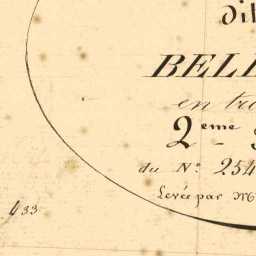 dit
BELL
en tro
2eme
du No. 254
Levée par Mr
433